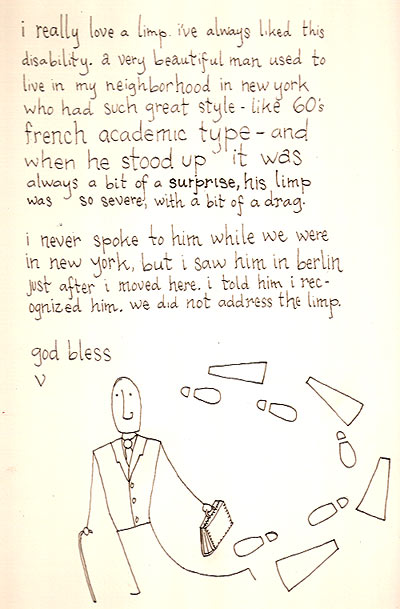 i really love a limp. i've always liked this
disability. a very beautiful man used to
live in my neighborhood in new york
who had such great style - like 60's
french academic type - and
when he stood up it was
always a bit of a surprise, his limp
was so severe, with a bit of a drag.
i never spoke to him while we were
in new york, but i saw him in berlin
just after i moved here. i told him i rec-
ognized him. we did not address the limp.
god bless
v